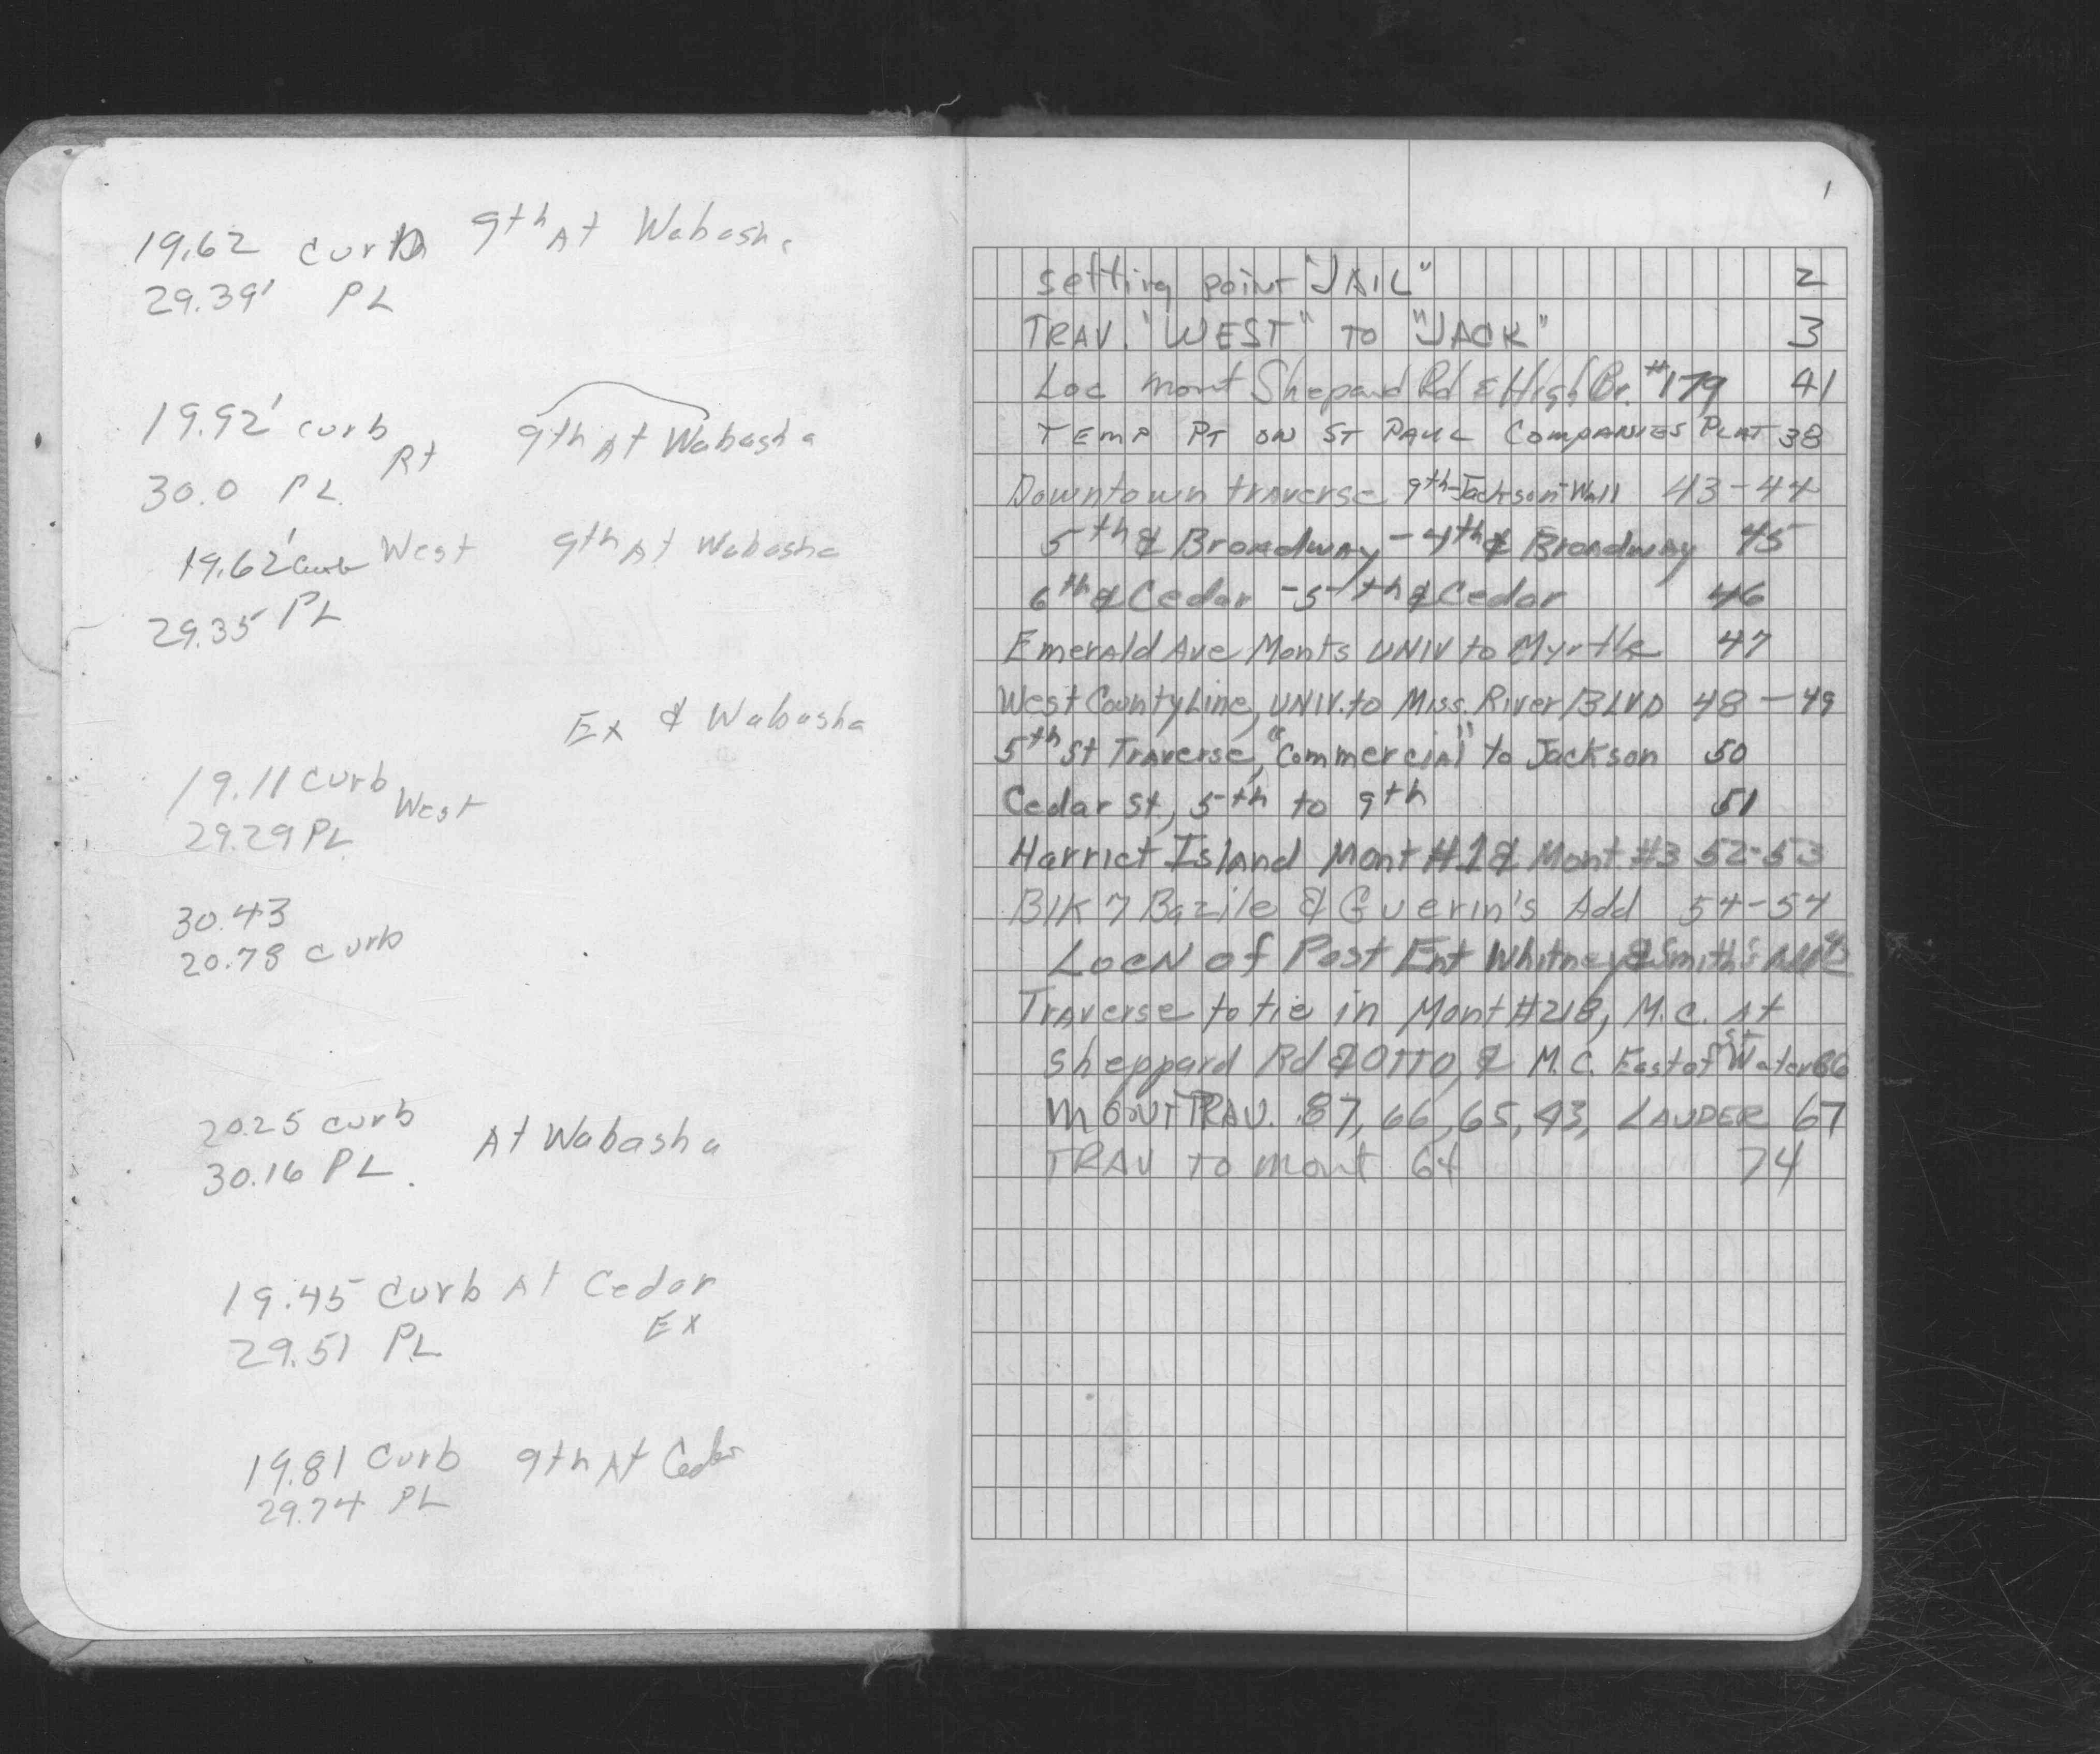 19.62 curb 9th At Wabasha
29.39' PL
19.92' curb Rt 9th At Wabasha
30.0 PL
19.62' Curb West 9th At Wabasha
29.35 PL
Ex & Wabasha
19.11 curb West
29.29 PL
30.43
20.78 curb
20.25 curb At Wabasha
30.16 PL.
19.45 curb At Cedar
29.51 PL Ex
19.81 curb 9th At Cedar
29.74 PL
1
setting point "JAIL" 2
TRAV. "WEST" TO "JACK" 3
Loc mont Shepard Rd & High Br. #179 41
TEMP PT ON ST PAUL COMPANIES PLAT 38
Downtown traverse 9th-Jackson-Wall 43-44
5th & Broadway - 4th & Broadway 45
6th & Cedar - 5th & Cedar 46
Emerald Ave Monts UNIV to Myrtle 47
West County Line, UNIV. to Miss. River BLVD 48-49
5th St Traverse, "Commercial" to Jackson 50
Cedar St, 5th to 9th 51
Harriet Island Mont #1 & Mont. #3 52-53
Blk 7 Bazile & Guerin's Add 54-54
LocN of Post Ent Whitney & Smith's
Traverse to tie in Mont #218, M.C. At
Sheppard Rd & OTTO, & M.C. East of Water St 66
MONT TRAV. 87, 66, 65, 43, LAUDER 67
TRAV to mont 64 74